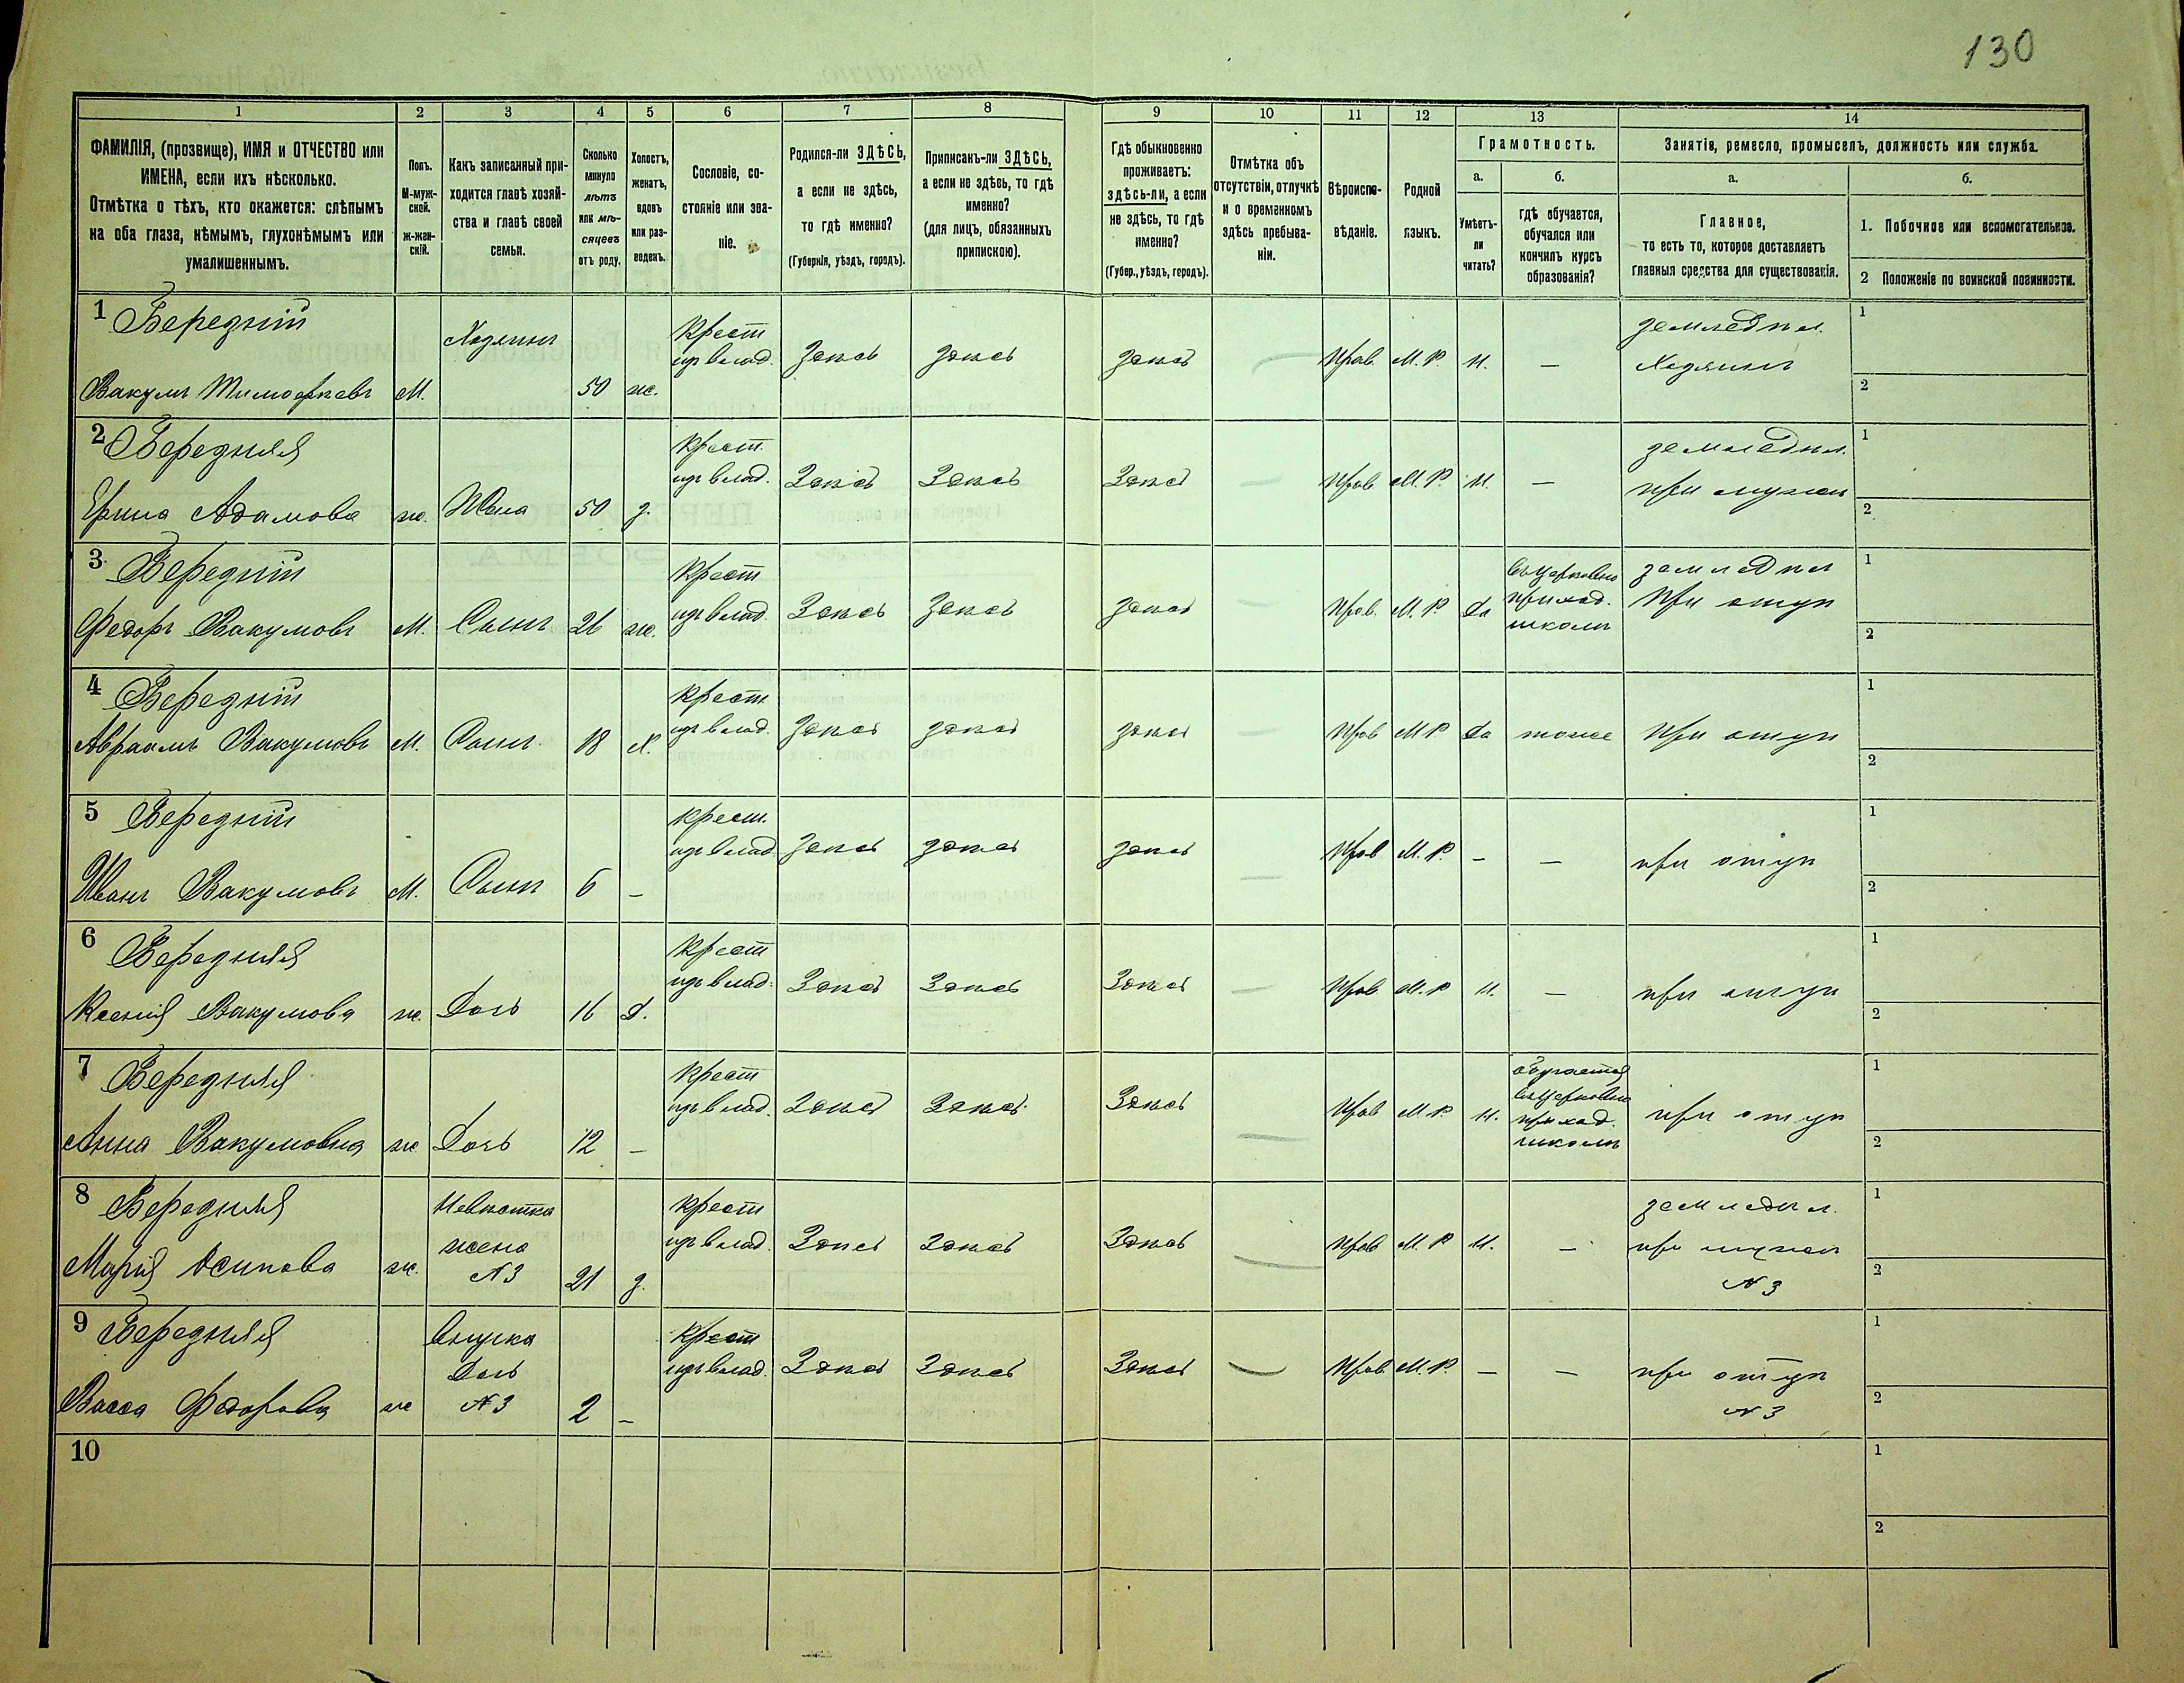 130
1 2 3 4 5 6 7 8 9 10 11 12 13 14
ФАМИЛІЯ, (прозвище), ИМЯ и ОТЧЕСТВО или
ИМЕНА, если ихъ нѣсколько.
Отмѣтка о тѣхъ, кто окажется: слѣпымъ
на оба глаза, нѣмымъ, глухонѣмымъ или
умалишеннымъ.
Полъ.
М-муж-
ской.
Ж-жен-
скій.
Какъ записанный при-
ходится главѣ хозяй-
ства и главѣ своей
семьи.
Сколько
минуло
лѣтъ
или мѣ-
сяцевъ
отъ роду.
Холостъ,
женатъ,
вдовъ
или раз-
веденъ.
Сословіе, со-
стояніе или зва-
ніе.
Родился-ли ЗДѢСЬ,
а если не здѣсь,
то гдѣ именно?
(Губернія, уѣздъ, городъ).
Приписанъ-ли ЗДѢСЬ,
а если не здѣсь, то гдѣ
именно?
(для лицъ, обязанныхъ
припискою).
Гдѣ обыкновенно
проживаетъ:
здѣсь-ли, а если
не здѣсь, то гдѣ
именно?
(Губер., уѣздъ, городъ).
Отмѣтка объ
отсутствіи, отлучкѣ
и о временномъ
здѣсь пребыва-
ніи.
Вѣроиспо-
вѣданіе.
Родной
языкъ.
Грамотность.
а.
Умѣетъ-
ли
читать?
б.
гдѣ обучается,
обучался или
кончилъ курсъ
образованія?
Занятіе, ремесло, промыселъ, должность или служба.
а.
Главное,
то есть то, которое доставляетъ
главныя средства для существованія.
б.
1. Побочное или вспомогательное.
2 Положеніе по воинской повинности.
1 Бередній Хозяинъ Крест землѣдѣл. 1
изъ влад. здѣсь здѣсь здѣсь Прав. М. Р. Н. — Хозяинъ
Вакулъ Тимофѣевъ М. 50 ж. 2
2 Бередняя Крест. землѣдѣл. 1
изъ влад. Здѣсь Здѣсь Здѣсь Прав М. Р. Н. — при мужѣ
Ерина Адамова ж. Жена 50 з. 2
3 Бередній Крест въ церковно землѣдѣл 1
изъ влад. Здѣсь Здѣсь здѣсь Прав. М. Р. да приход. При отцѣ
Федоръ Вакумовъ М. Сынъ 26 ж. школѣ 2
4 Бередній Крест. 1
Авраамъ Вакумовъ М. Сынъ 18 Х. изъ влад. здѣсь здѣсь здѣсь Прав М Р да тоже При отцѣ 2
5 Бередній крест. 1
изъ влад. здѣсь здѣсь здѣсь Прав М. Р. — — при отцѣ
Иванъ Вакумовъ М. Сынъ 6 — 2
6 Бередняя Крест 1
изъ влад. Здѣсь Здѣсь Здѣсь Прав М. Р Н. — при отцѣ
Ксенія Вакумова ж. Дочь 16 д. 2
7 Бередняя Крест обучается 1
изъ влад. Здѣсь Здѣсь Здѣсь Прав М Р Н. въ церковно при отцѣ
приход.
Анна Вакумовна ж Дочь 12 — школѣ 2
8 Бередняя Невѣстка крест землѣдѣл. 1
жена изъ влад. Здѣсь Здѣсь Здѣсь Прав М. Р Н. — при мужѣ
Марія Осипова ж. N 3 21 з. N 3 2
9 Бередняя Внучка Крест 1
Дочь изъ влад. Здѣсь Здѣсь Здѣсь Прав М. Р. — — при отцѣ
Васса Федорова ж N 3 2 — N 3 2
10 1
2